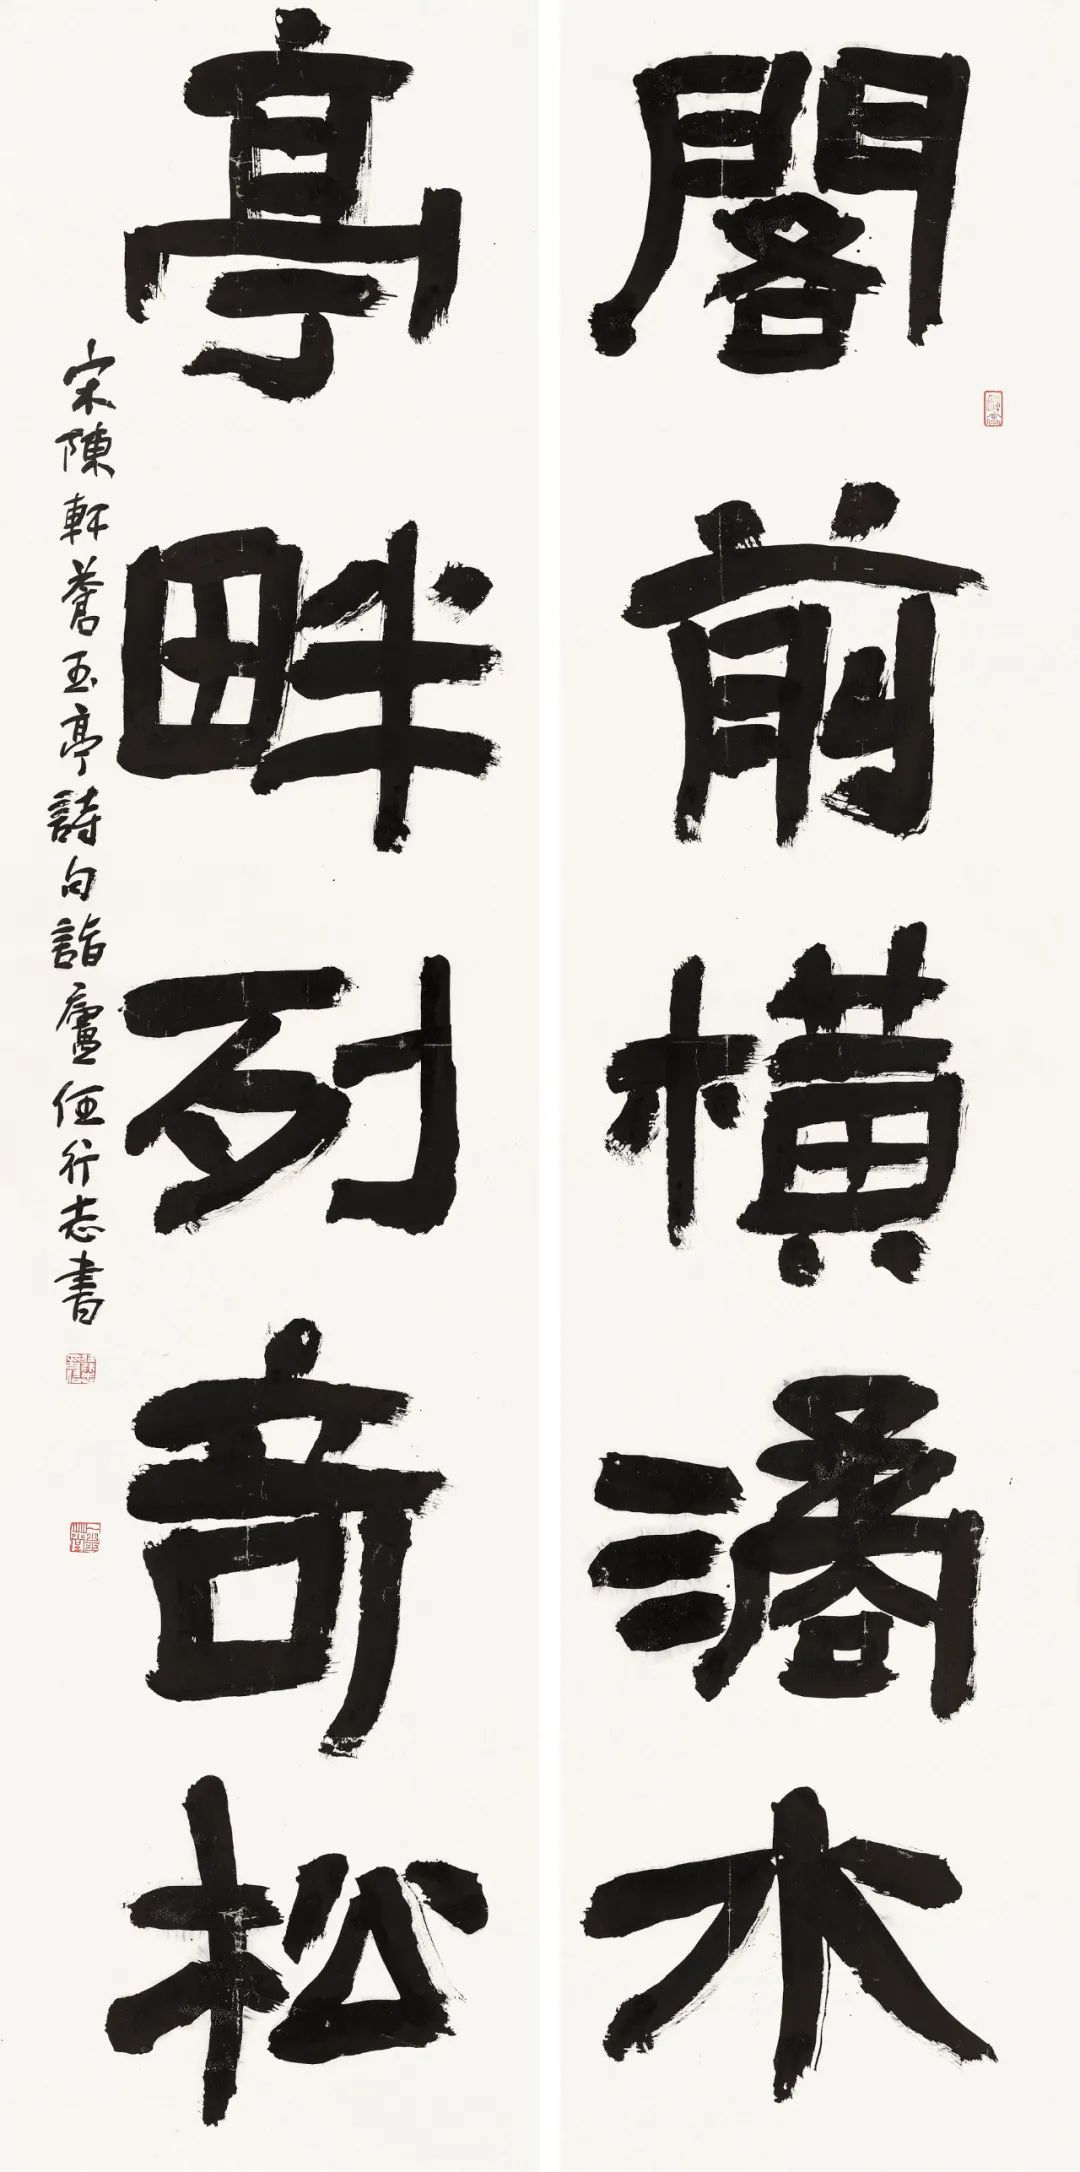 閣前橫潏水
亭畔列奇松
宋陳軒蒼玉亭詩句詣廬任行志書